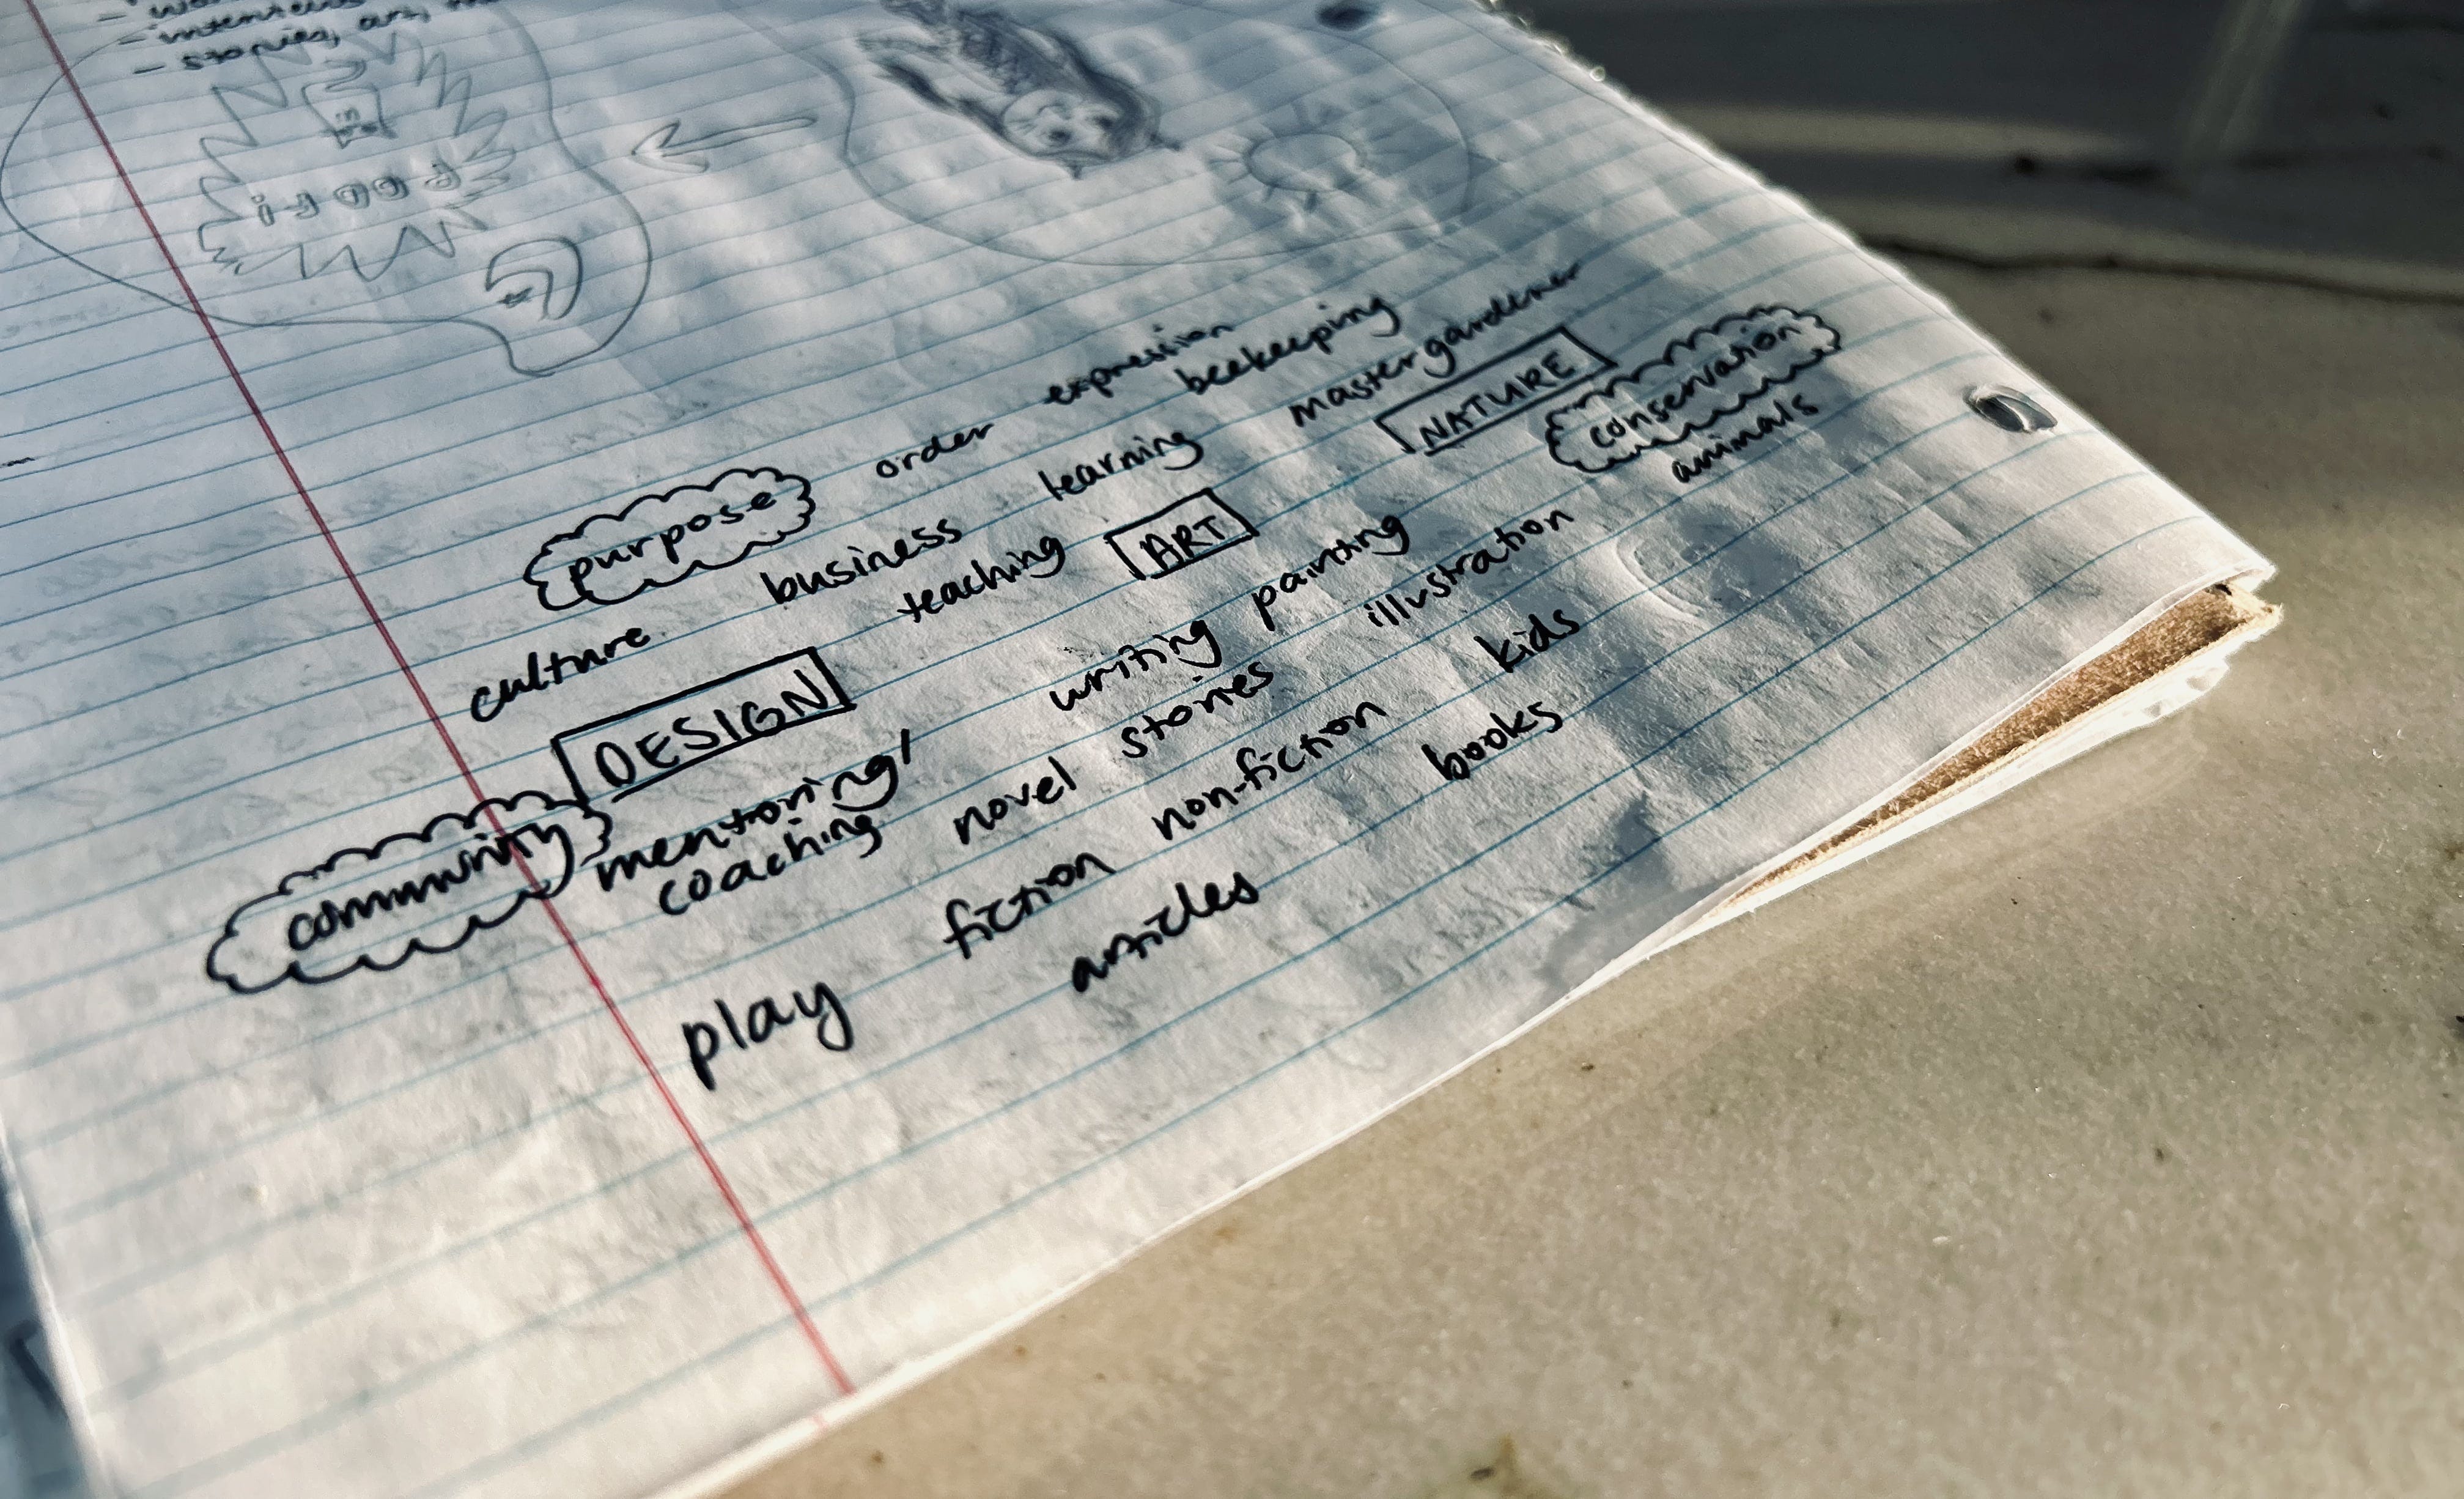 - stories, art,
purpose order expression
culture business learning beekeeping
DESIGN teaching ART master gardener
NATURE
community mentoring/ writing painting conservation
coaching novel stories illustration animals
play fiction non-fiction kids
articles books